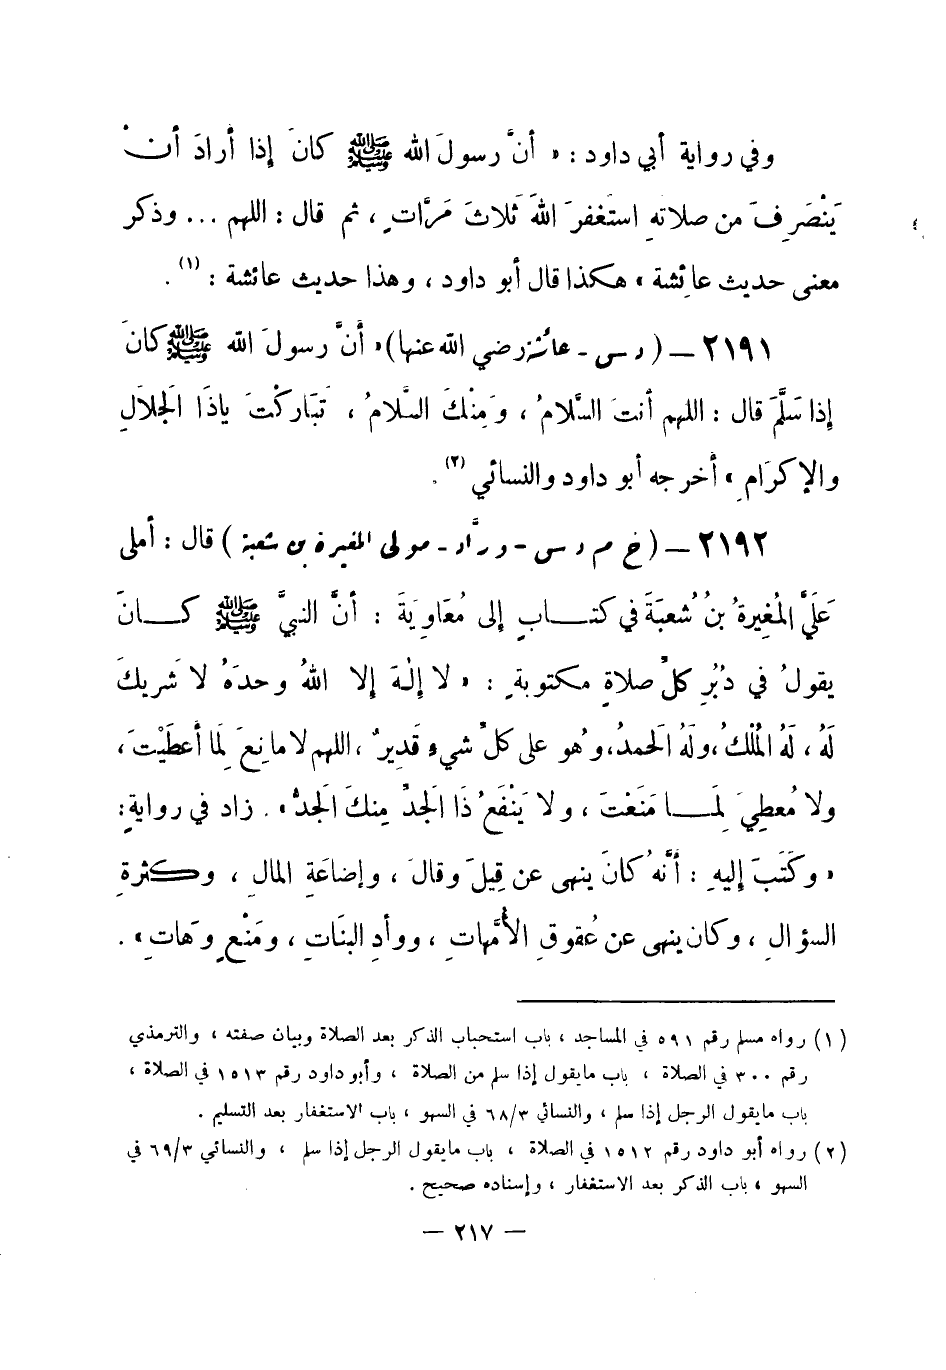 وفي رواية أبي داود : « أنَّ رسولَ الله ﷺ كانَ إذا أرادَ أنْ
يَنْصَرِفَ من صلاتهِ استَغفرَ اللهَ ثَلاثَ مَرَّاتٍ ، ثم قال : اللهم ... وذكر
معنى حديث عائِشة » هكذا قال أبو داود ، وهذا حديث عائشة : (١) .
٢١٩١ – ( د س - عائشة رضي الله عنها ) « أنَّ رسولَ الله ﷺ كانَ
إذا سَلَّمَ قال : اللهم أنتَ السَّلامُ ، وَمِنْكَ السَّلامُ ، تَبَاركْتَ ياذَا الَجلالِ
والإكرَامِ » أخرجه أبو داود والنسائي (٢) .
٢١٩٢ – ( خ م د س - ورَّاد - مولى المغيرة بن شعبة ) قال : أملى
عَلَيَّ المُغِيرةُ بنُ شُعبَةَ في كتابٍ إلى مُعَاوِيَةَ : أنَّ النبيَّ ﷺ كانَ
يقولُ في دُبُرِ كلِّ صلاةٍ مكتوبةٍ : « لا إلٰهَ إلا اللهُ وحدَهُ لا شَريكَ
لَهُ ، لَهُ المُلْكُ ، ولَهُ الَحمدُ، وهُو على كلِّ شيءٍ قَدِيرٌ ، اللهم لا مانِعَ لِمَا أعطَيْتَ ،
ولا مُعطِيَ لِمَا مَنَعْتَ ، ولا يَنْفَعُ ذَا الَجدِّ مِنكَ الَجدُّ » . زاد في روايةٍ :
« وكَتَبَ إليهِ : أنَّهُ كانَ ينهى عن قِيلَ وقالَ ، وإضاعَةِ المالِ ، وكثرةِ
السؤالِ ، وكان ينهى عن عُقوقِ الأُمَّهاتِ ، ووأدِ البنَاتِ ، ومَنْعٍ وَهاتِ » .
(١) رواه مسلم رقم ٥٩١ في المساجد ، باب استحباب الذكر بعد الصلاة وبيان صفته ، والترمذي
رقم ٣٠٠ في الصلاة ، باب مايقول إذا سلم من الصلاة ، وأبو داود رقم ١٥١٣ في الصلاة ،
باب مايقول الرجل إذا سلم ، والنسائي ٦٨/٣ في السهو ، باب الاستغفار بعد التسليم .
(٢) رواه أبو داود رقم ١٥١٢ في الصلاة ، باب مايقول الرجل إذا سلم ، والنسائي ٦٩/٣ في
السهو ، باب الذكر بعد الاستغفار ، وإسناده صحيح .
– ٢١٧ –